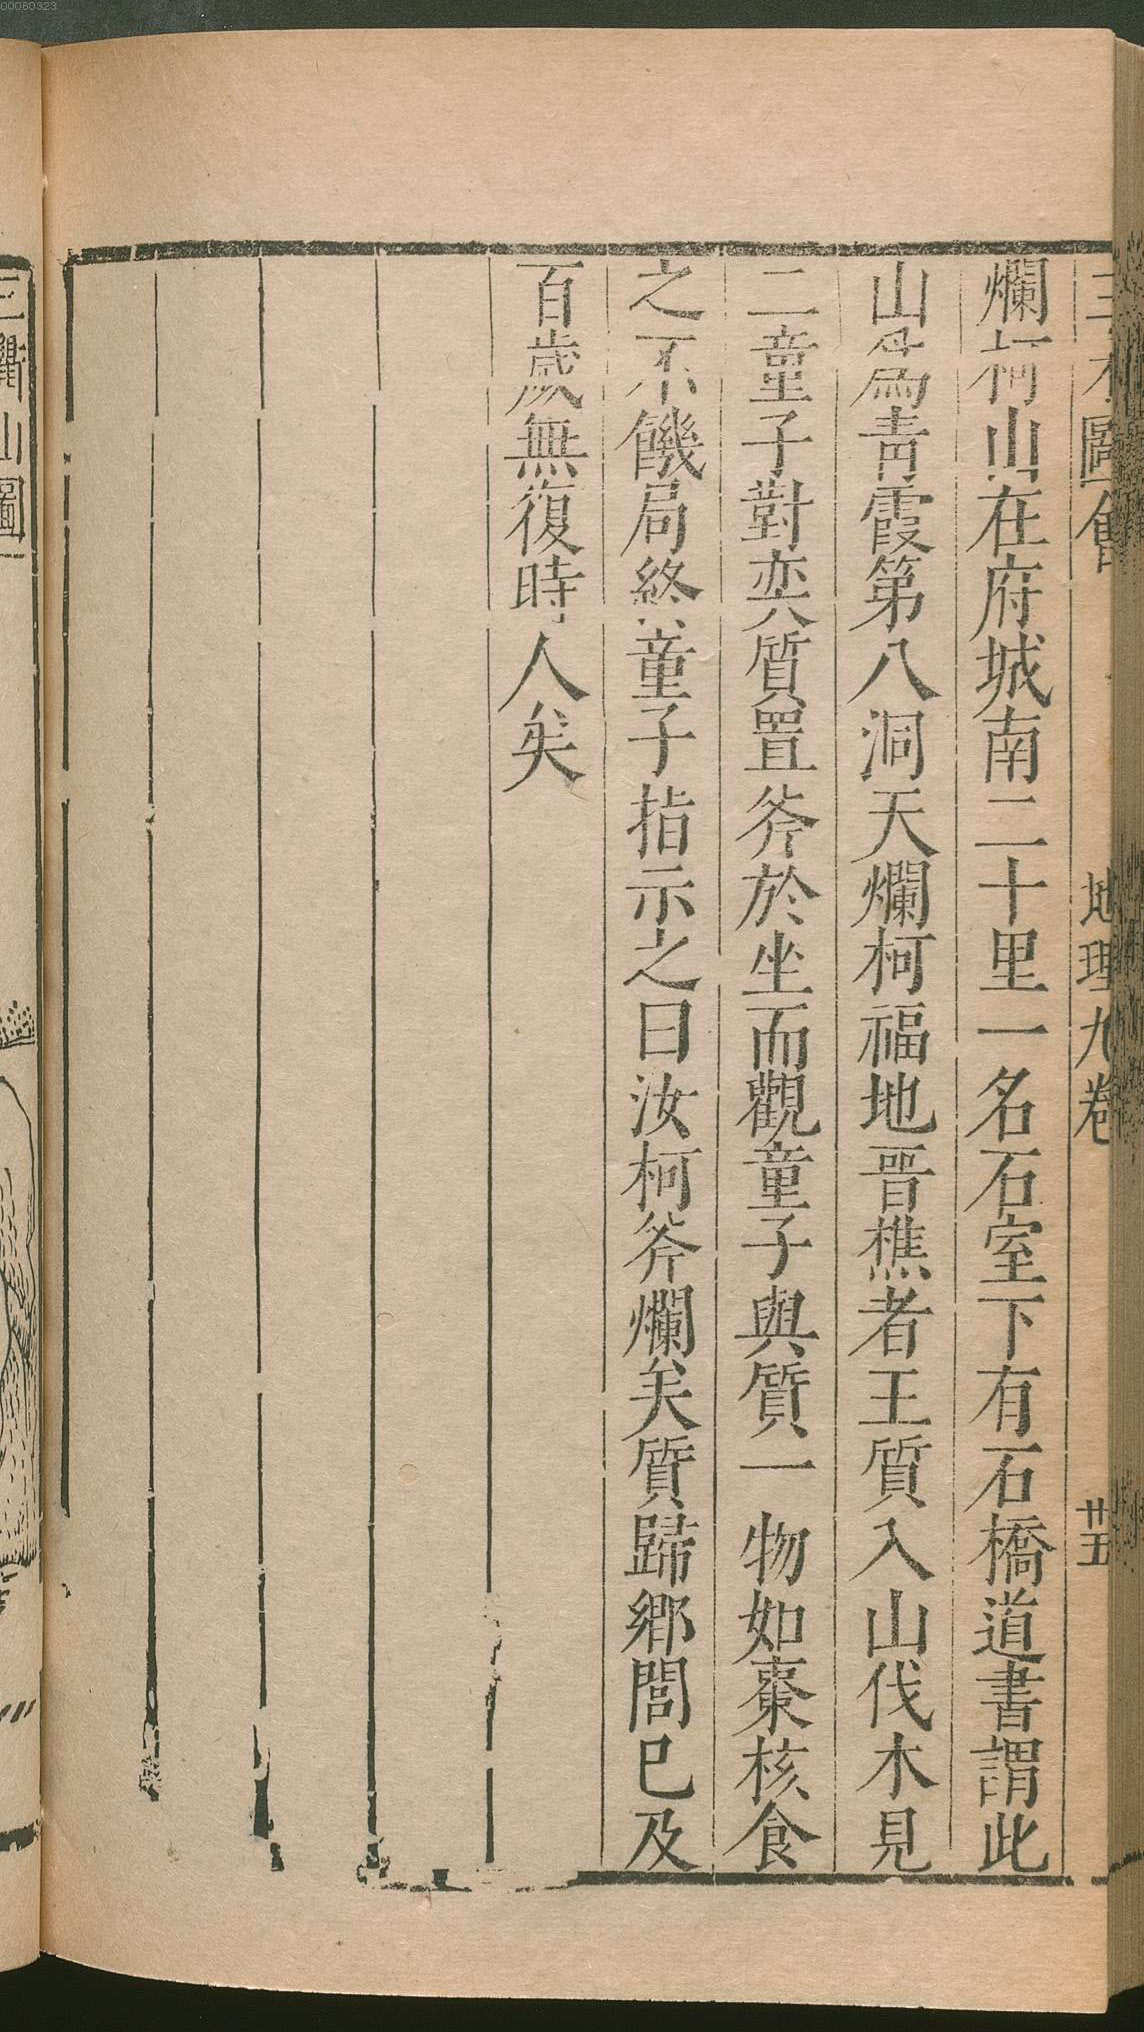 00060323
三才圖會 地理九卷 廿五
爛柯山在府城南二十里一名石室下有石橋道書謂此
山爲青霞第八洞天爛柯福地晋樵者王質入山伐木見
二童子對奕質置斧於坐而觀童子與質一物如棗核食
之不饑局終童子指示之曰汝柯斧爛矣質歸鄉閭已及
百歲無復時人矣
三衢山圖